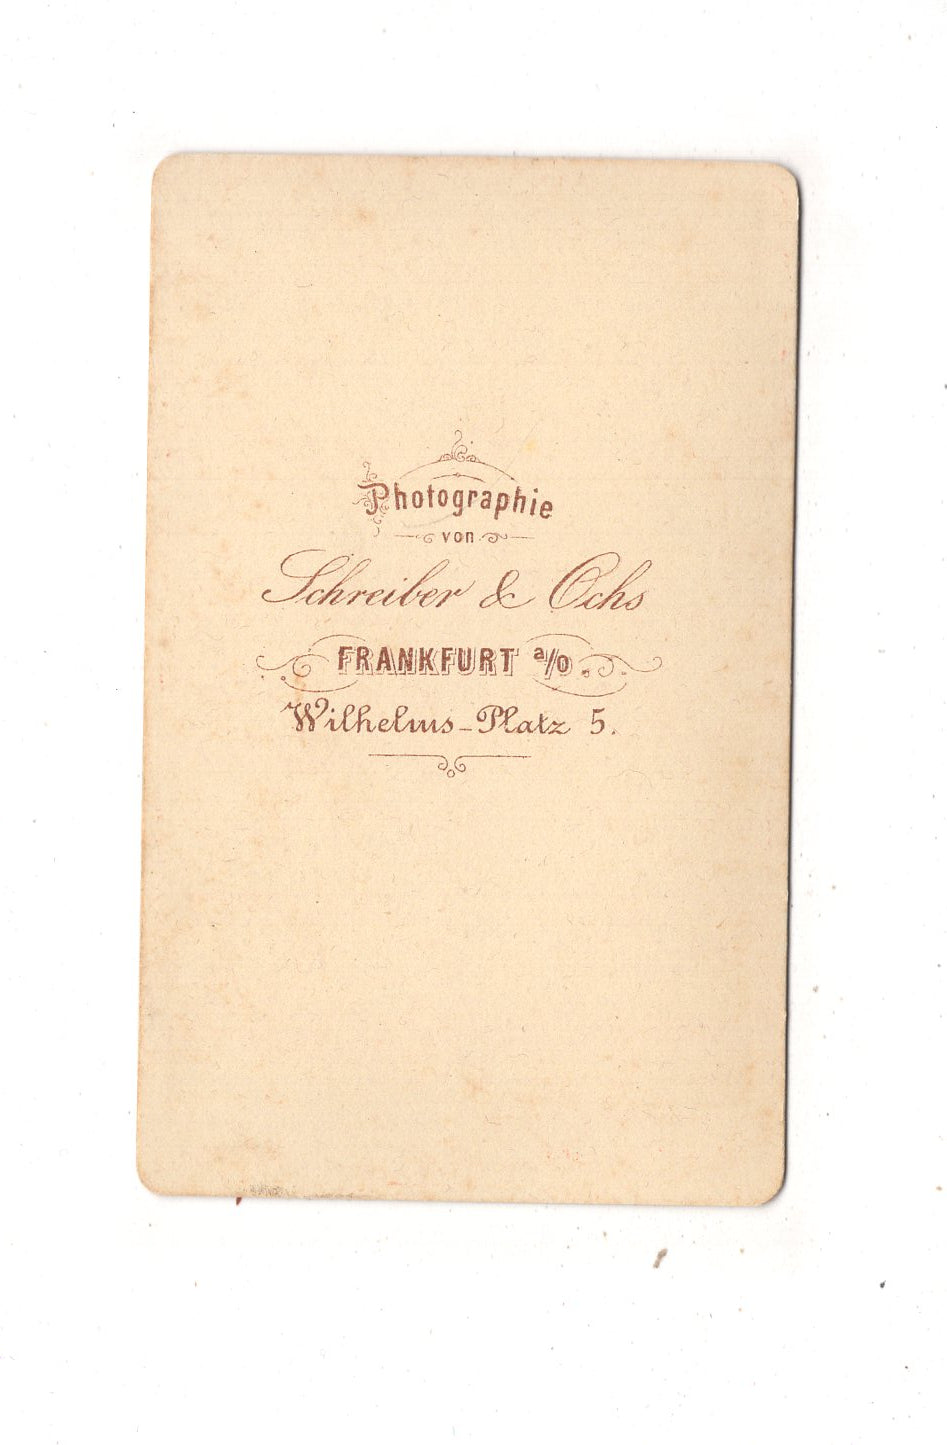 Photographie
von
Schreiber & Ochs
FRANKFURT a/O.
Wilhelms-Platz 5.